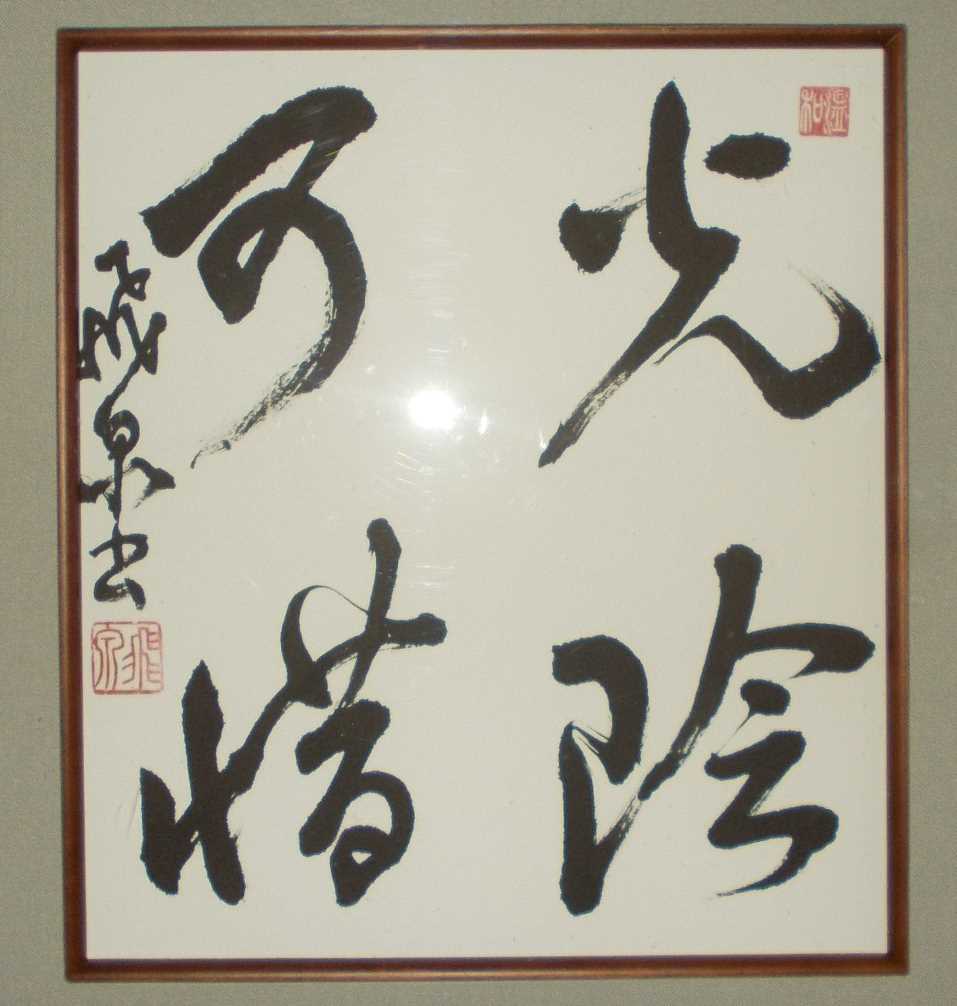 光陰
可惜
飛泉書